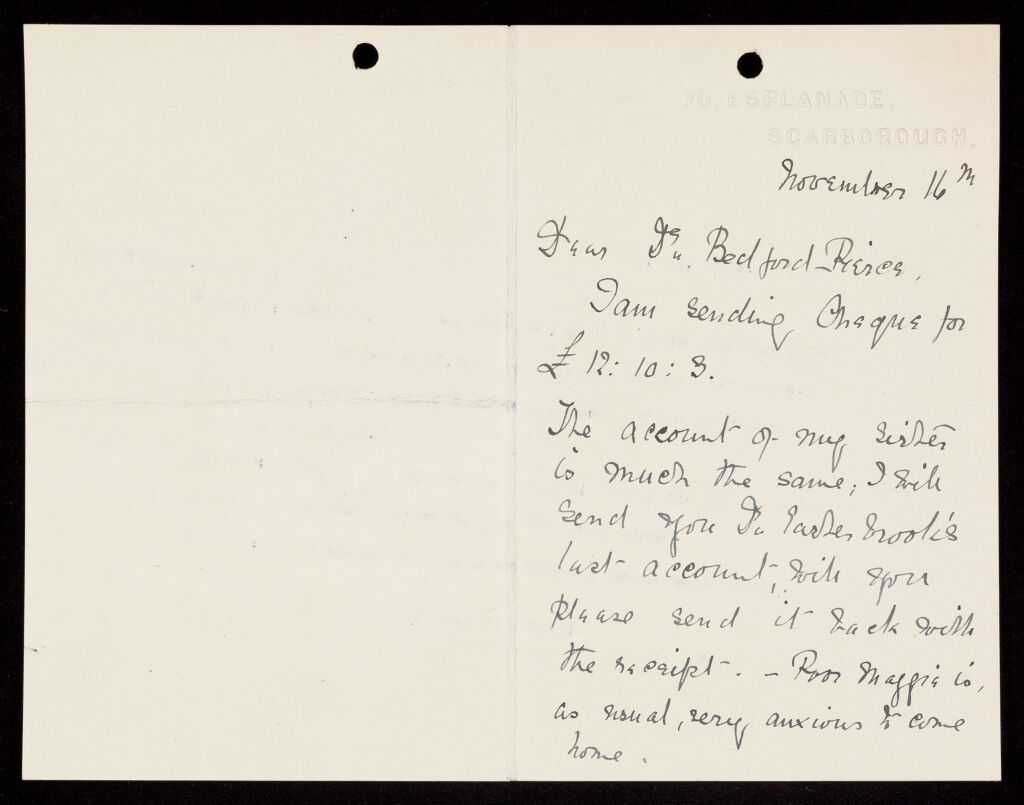 70, ESPLANADE.
SCARBOROUGH.
November 16th
Dear Dr. Bedford-Pierce,
I am sending Cheque for
£ 12: 10: 3.
The account of my sister
is much the same; I will
send you Dr. Easterbrook's
last account, will you
please send it back with
the receipt. - Poor Maggie is,
as usual, very anxious to come
home.